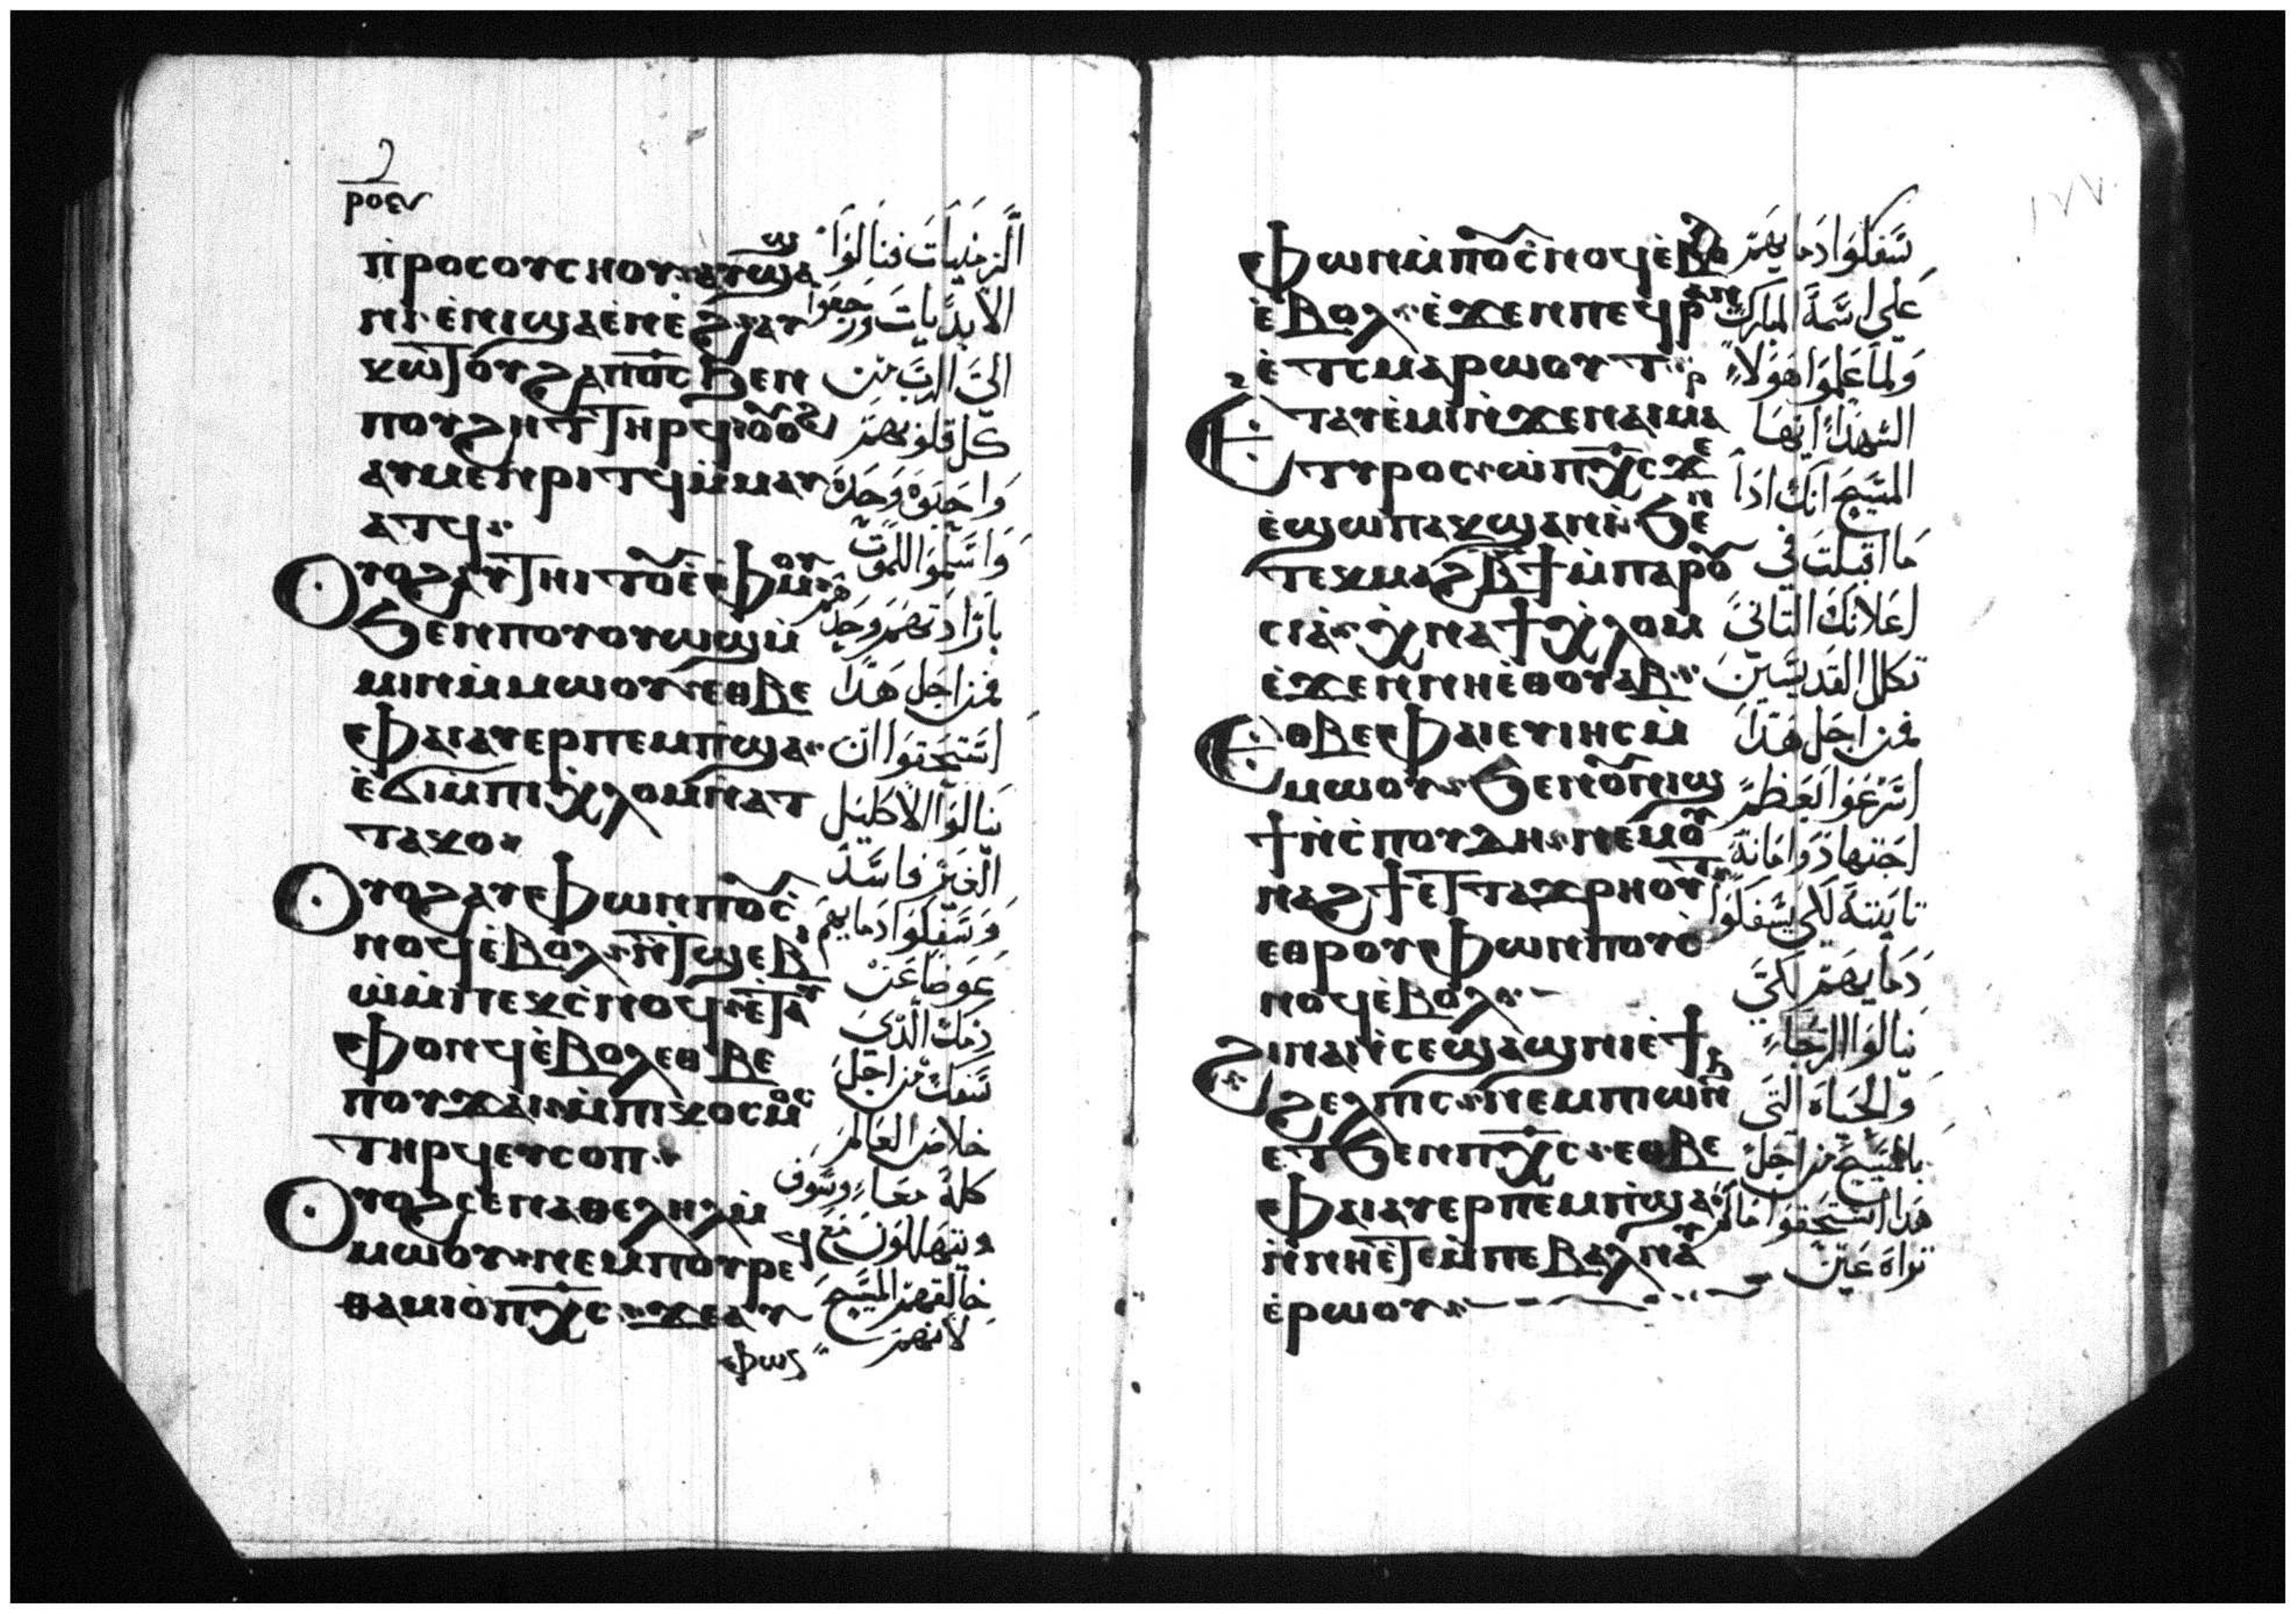 ⲣⲟⲉ
ⲡⲣⲟⲥⲟⲩⲥⲛⲟⲩ ⲁⲩϣⲁ
ⲛⲓ ⲉⲛⲓϣⲁⲉⲛⲉϩ ⲁⲩ
ⲕⲱϯ ⲟⲩϩⲁ ⲡⲟ̅ⲥ̅ ϧⲉⲛ
ⲡⲟⲩϩⲏⲧ ⲧⲏⲣϥ
ⲁⲩⲙⲉⲛⲣⲓⲧϥ ⲙⲙⲁⲩ
ⲁⲧϥ
ⲟⲩⲟϩ ⲁⲩⲧⲏⲓⲧⲟⲩ ⲉⲫⲙⲟⲩ
ϧⲉⲛⲡⲟⲩⲟⲩⲱϣ ⲙ
ⲙⲓⲛⲙⲙⲱⲟⲩ ⲉⲑⲃⲉ
ⲫⲁⲓ ⲁⲩⲉⲣⲡⲉⲙⲡϣⲁ
ⲉϭⲓ ⲙⲡⲓⲭⲗⲟⲙ ⲛⲁⲧ
ⲧⲁⲕⲟ
ⲟⲩⲟϩ ⲁⲩⲫⲱⲛ ⲡⲟⲩⲥ
ⲛⲟϥ ⲉⲃⲟⲗ ⲛⲧϣⲉⲃ
ⲓⲱ ⲙⲡⲉⲕⲥⲛⲟϥ ⲉⲧⲁⲩ
ⲫⲟⲛϥ ⲉⲃⲟⲗ ⲉⲑⲃⲉ
ⲡⲟⲩϫⲁⲓ ⲙⲡⲓⲕⲟⲥⲙⲟⲥ
ⲧⲏⲣϥ ⲉⲩⲥⲟⲡ
ⲟⲩⲟϩ ⲥⲉⲛⲁⲑⲉⲗⲏⲗ ⲙ
ⲙⲱⲟⲩ ⲛⲉⲙ ⲡⲟⲩⲣⲉϥ
ⲑⲁⲙⲓⲟ ⲡⲭ̅ⲥ̅ ϫⲉ ⲁⲩ
ⲫⲱ
الزمنيات فنالوا
الابديات ورجعوا
الى الرب من
كل قلوبهم
واحبوه وحده
واسلموا للموت
بارادتهم وحدهم
فمن اجل هدا
استحقوا ان
ينالوا الاكليل
الغير فاسد
وسفكوا دمايهم
عوضا عن
دمك الدى
سفك من اجل
خلاص العالم
كله معا وسوف
يتهللون مع
خالقهم المسيح
لانهم
١٧٧
ⲫⲱⲛ ⲙⲡⲟⲩⲥⲛⲟϥ ⲉ
ⲉⲃⲟⲗ ⲉϫⲉⲛ ⲡⲉϥⲣⲁⲛ
ⲉⲧⲥⲙⲁⲣⲱⲟⲩⲧ
ⲉⲧⲁⲩⲉⲙⲓ ⲛϫⲉ ⲛⲁⲓⲙⲁⲣ
ⲧⲩⲣⲟⲥ ⲱ ⲡⲭ̅ⲥ̅ ϫⲉ
ⲉϣⲱⲡ ⲁⲕϣⲁⲛⲓ ϧⲉⲛ
ⲧⲉⲕⲙⲁϩⲃϯ ⲙⲡⲁⲣⲟⲩ
ⲥⲓⲁ ⲭⲛⲁϯⲭⲗⲟⲙ
ⲉϫⲉⲛ ⲛⲏⲉⲑⲟⲩⲁⲃ
ⲉⲑⲃⲉ ⲫⲁⲓ ⲉⲩⲓⲏⲥ ⲙ
ⲙⲱⲟⲩ ϧⲉⲛⲟⲩⲛⲓϣ
ϯ ⲛⲥⲡⲟⲩⲇⲏ ⲛⲉⲙⲟⲩ
ⲛⲁϩϯ ⲉϥⲧⲁϫⲣⲏⲟⲩⲧ
ⲉⲑⲣⲟⲩⲫⲱⲛ ⲡⲟⲩⲥ
ⲛⲟϥ ⲉⲃⲟⲗ
ϩⲓⲛⲁ ⲛⲥⲉϣⲁϣⲛⲓ ⲉϯ
ϩⲉⲗⲡⲓⲥ ⲛⲉⲙ ⲡⲓⲱⲛϧ
ⲉⲧϧⲉⲛ ⲡⲭ̅ⲥ̅ ⲉⲑⲃⲉ
ⲫⲁⲓ ⲁⲩⲉⲣⲡⲉⲙⲡϣⲁ
ⲛⲛⲏⲉⲧⲉⲙⲡⲉ ⲃⲁⲗ ⲛⲁⲩ
ⲉⲣⲱⲟⲩ
سفكوا دمايهم
على اسمه المبارك
ولما علموا هولاء
الشهدا ايها
المسيح انك ادا
ما اقبلت في
اعلانك التاني
تكلل القديسين
فمن اجل هدا
اسرعوا بعظم
اجتهاد وامانة
تابتة لكي يسفكوا
دمايهم لكي
ينالوا الرجاء
والحياه التي
بالمسيح من اجل
هدا استحقوا مالم
تراه عين